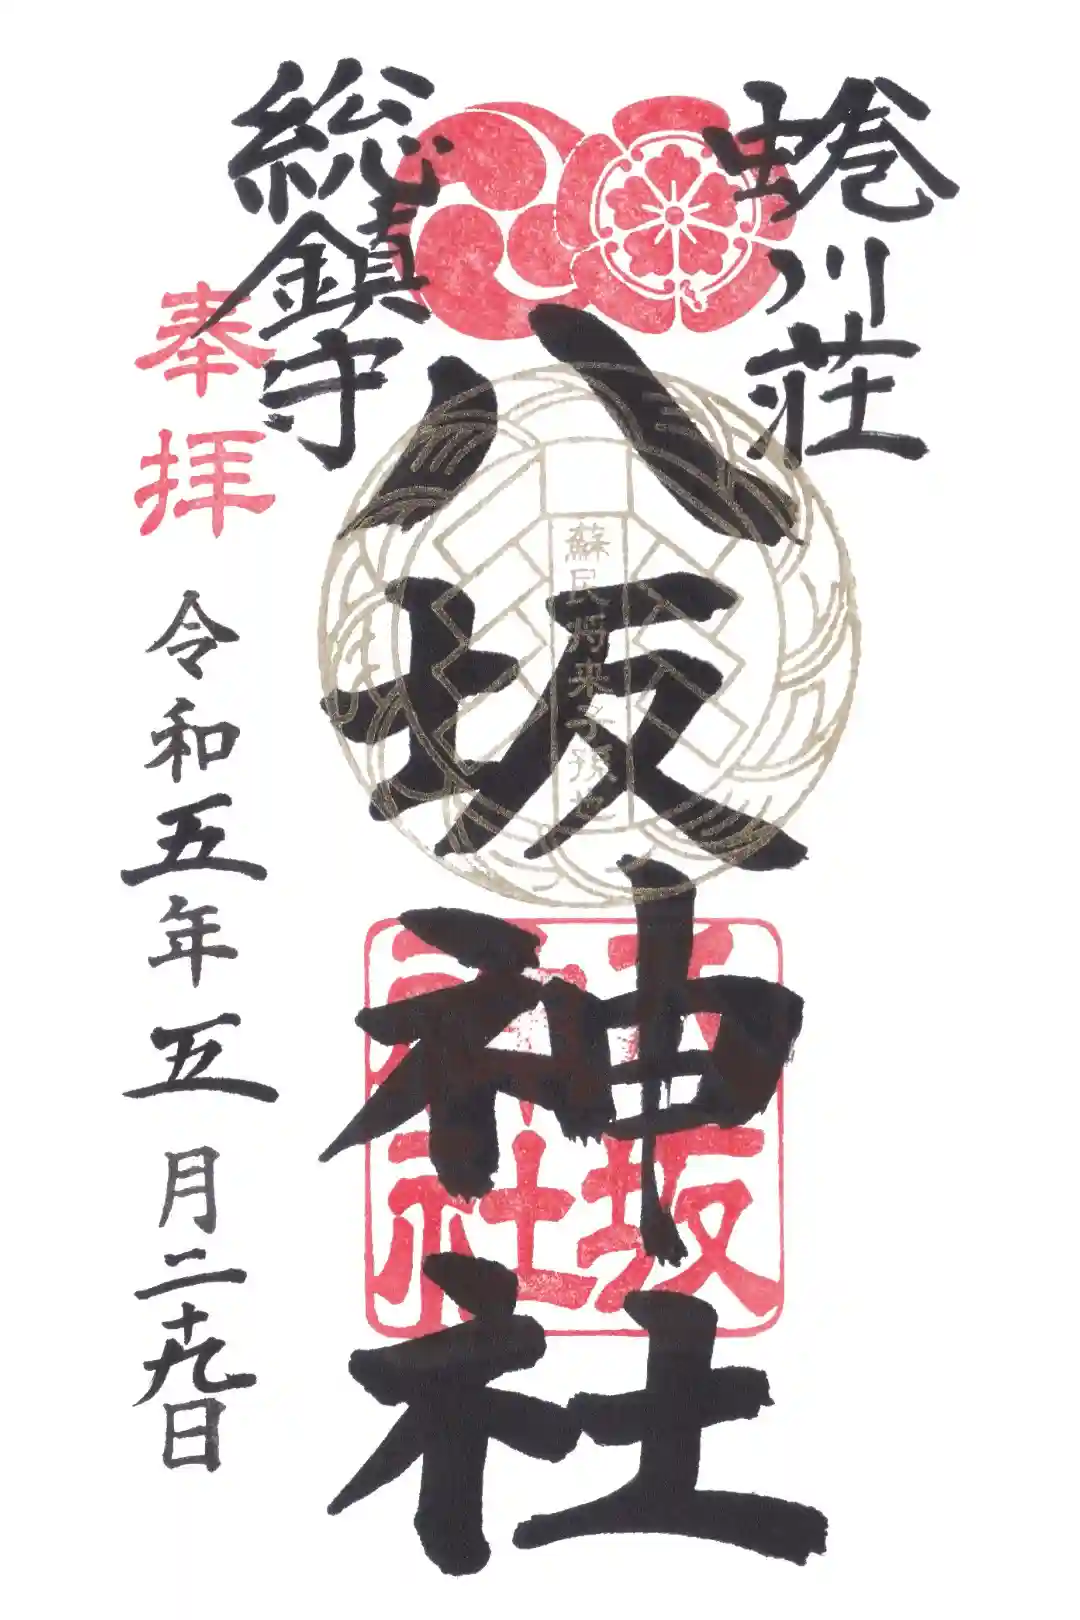 蜷川荘
八坂神社
蘇民将来子孫也
八坂神社
総鎮守
奉拝
令和五年五月二十九日